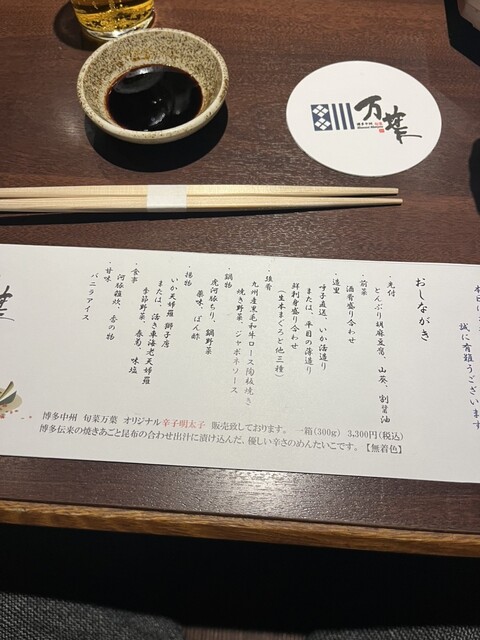 万葉
博多中洲
本日は
誠に有難うございます
おしながき
・先付
とんぶり胡麻豆腐、山葵、割醤油
・前菜
酒肴盛り合わせ
・造里
呼子直送、いか活造り
または、平目の薄造り
鮮刺身盛り合わせ
(生本まぐろと他三種)
・強肴
九州産黒毛和牛ロース陶板焼き
焼き野菜、ジャポネソース
・鍋物
虎河豚ちり、鍋野菜
薬味、ぽん酢
・揚物
いか天婦羅 獅子唐
または、活き車海老天婦羅
季節野菜、春菊、味塩
・食事
河豚雑炊、香の物
・甘味
バニラアイス
博多中州 旬菜万葉 オリジナル辛子明太子 販売致しております。 一箱(300g) 3,300円(税込)
博多伝来の焼きあごと昆布の合わせ出汁に漬け込んだ、優しい辛さのめんたいこです。【無着色】